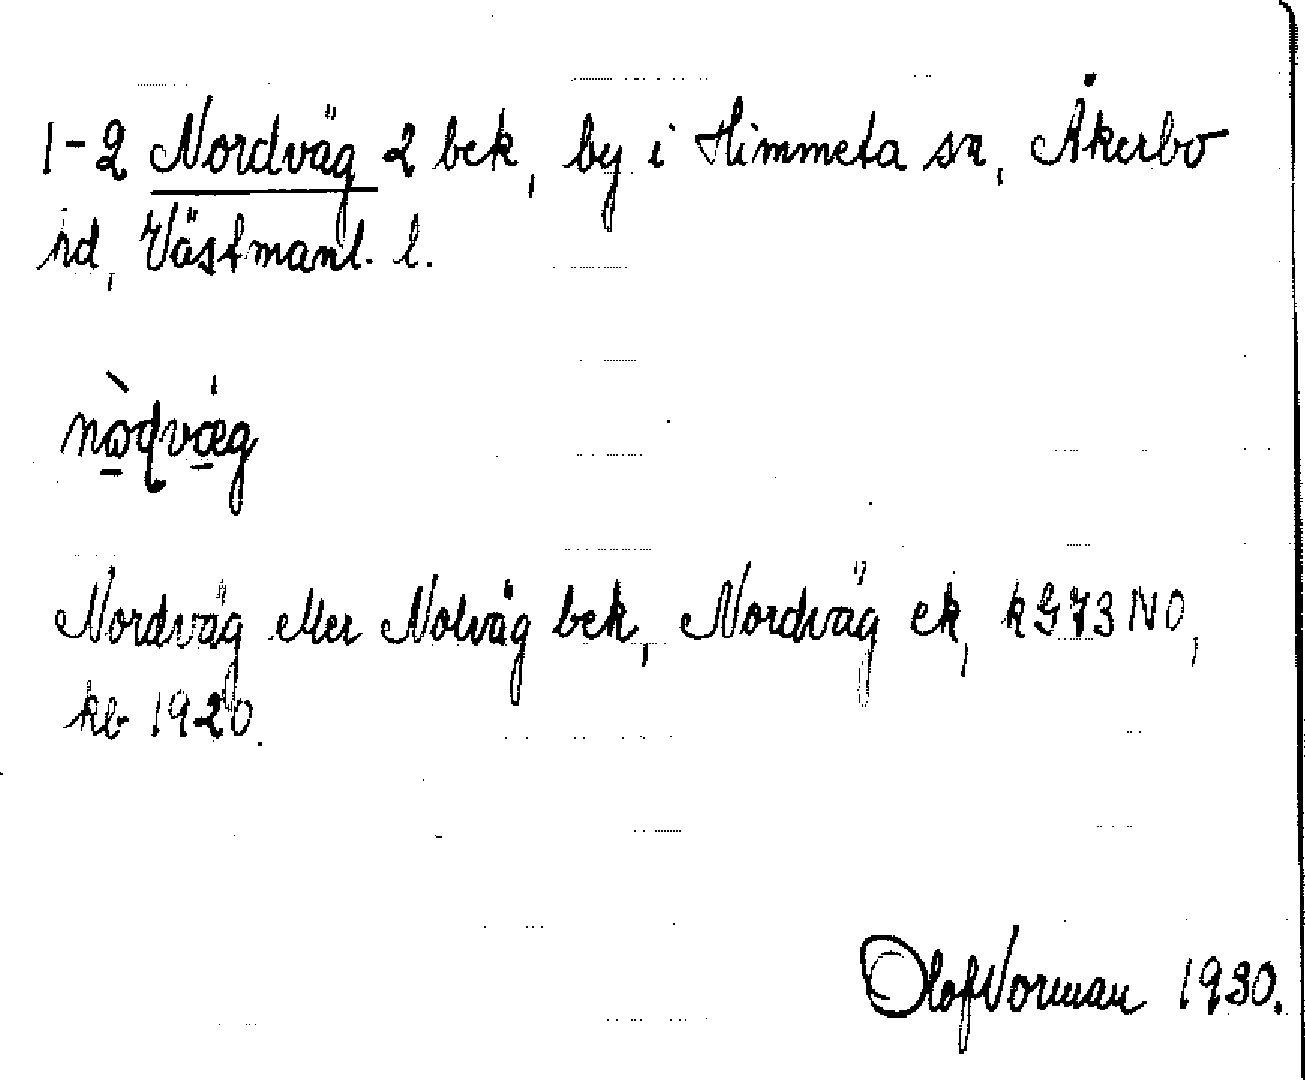 1-2 Nordväg 2 bek, by i Himmeta sn, Åkerbo
hd, Västmanl. l.
no̠qvæ̠g
Nordväg eller Nolväg bek, Nordväg ek, k G73 NO,
kb 1920.
Olof Norman 1930.